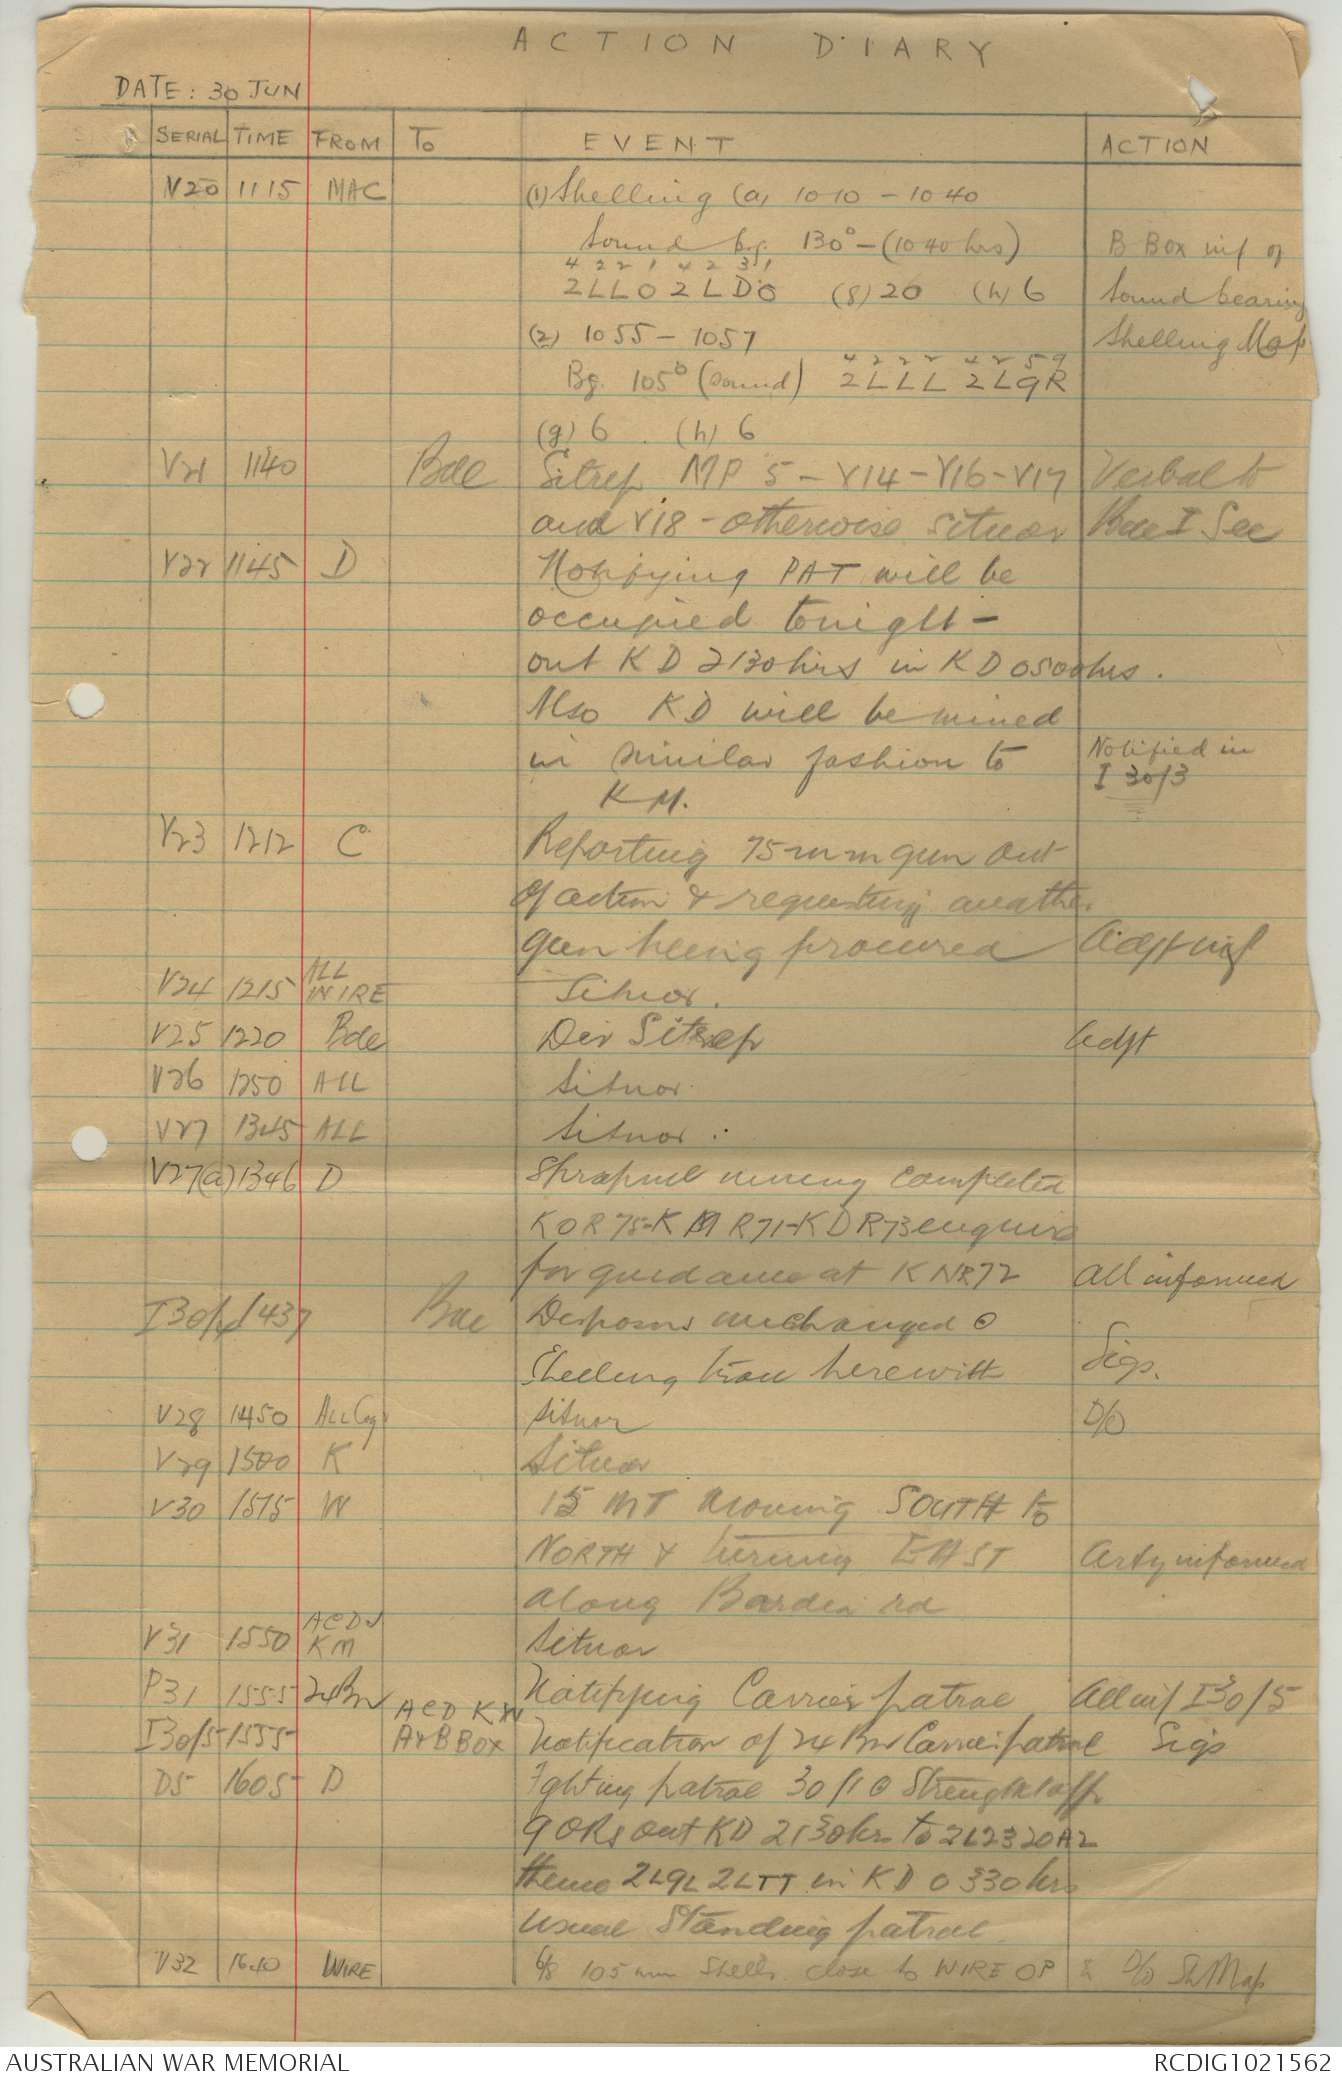 ACTION DIARY
DATE: 30 JUN
SERIAL TIME FROM To EVENT ACTION
V20 1115 MAC (1) Shelling (a) 1010 - 1040
Sound bg. 130° - (1040 hrs) B Box inf of
4 2 2 1 4 2 3 1
2LLO 2LDO (g) 20 (h) 6 Sound bearing
(2) 1055 - 1057 Shelling Map
4 2 2 2 4 2 5 9
Bg. 105° (sound) 2LLL 2L9R
(g) 6 . (h) 6
V21 1140 Bde Sitrep MP 5 - V14 - V16 - V17 Verbal to
and V18 - otherwise situor Bde I Sec
V22 1145 D Notifying PAT will be
occupied tonight -
out KD 2130 hrs in KD 0500 hrs.
Also KD will be mined
in similar fashion to Notified in
KM. I 30/3
V23 1212 C Reporting 75 mm gun out
of action & requesting another
gun being procured Adjt inf
V24 1215 ALL IN WIRE Situor.
V25 1220 Bde Div Sitrep Adjt
V26 1250 ALL Situor.
V27 1345 ALL Situor.
V27(a) 1346 D Shrapnel mining completed
KO R75 - KM R71 - KD R73 enquire
for guidance at KN R72 All informed
I30/4 1437 Bde Disposns unchanged
Shelling herewith Sigs.
V28 1450 ALL Coys situor D/O
V29 1500 K Situor
V30 1515 W 15 MT moving SOUTH to
NORTH & turning EAST Arty informed
along Bardia rd
V31 1550 ACDJ KM Situor
P31 1555 24Bn Notifying Carrier patrol All inf I30/5
I30/5 1555 ACD KW A & B BOX Notification of 24 Bn Carrier patrol Sigs
D5 1605 D Fighting patrol 30/1 Strength 1 offr
9 ORs out KD 2130 hrs to 2L2320A2
thence 2L9L 2LTT in KD 0330 hrs
usual Standing patrol.
V32 1610 WIRE 6/8 105 mm Shells close to WIRE OP & D/O Sh Map
AUSTRALIAN WAR MEMORIAL RCDIG1021562